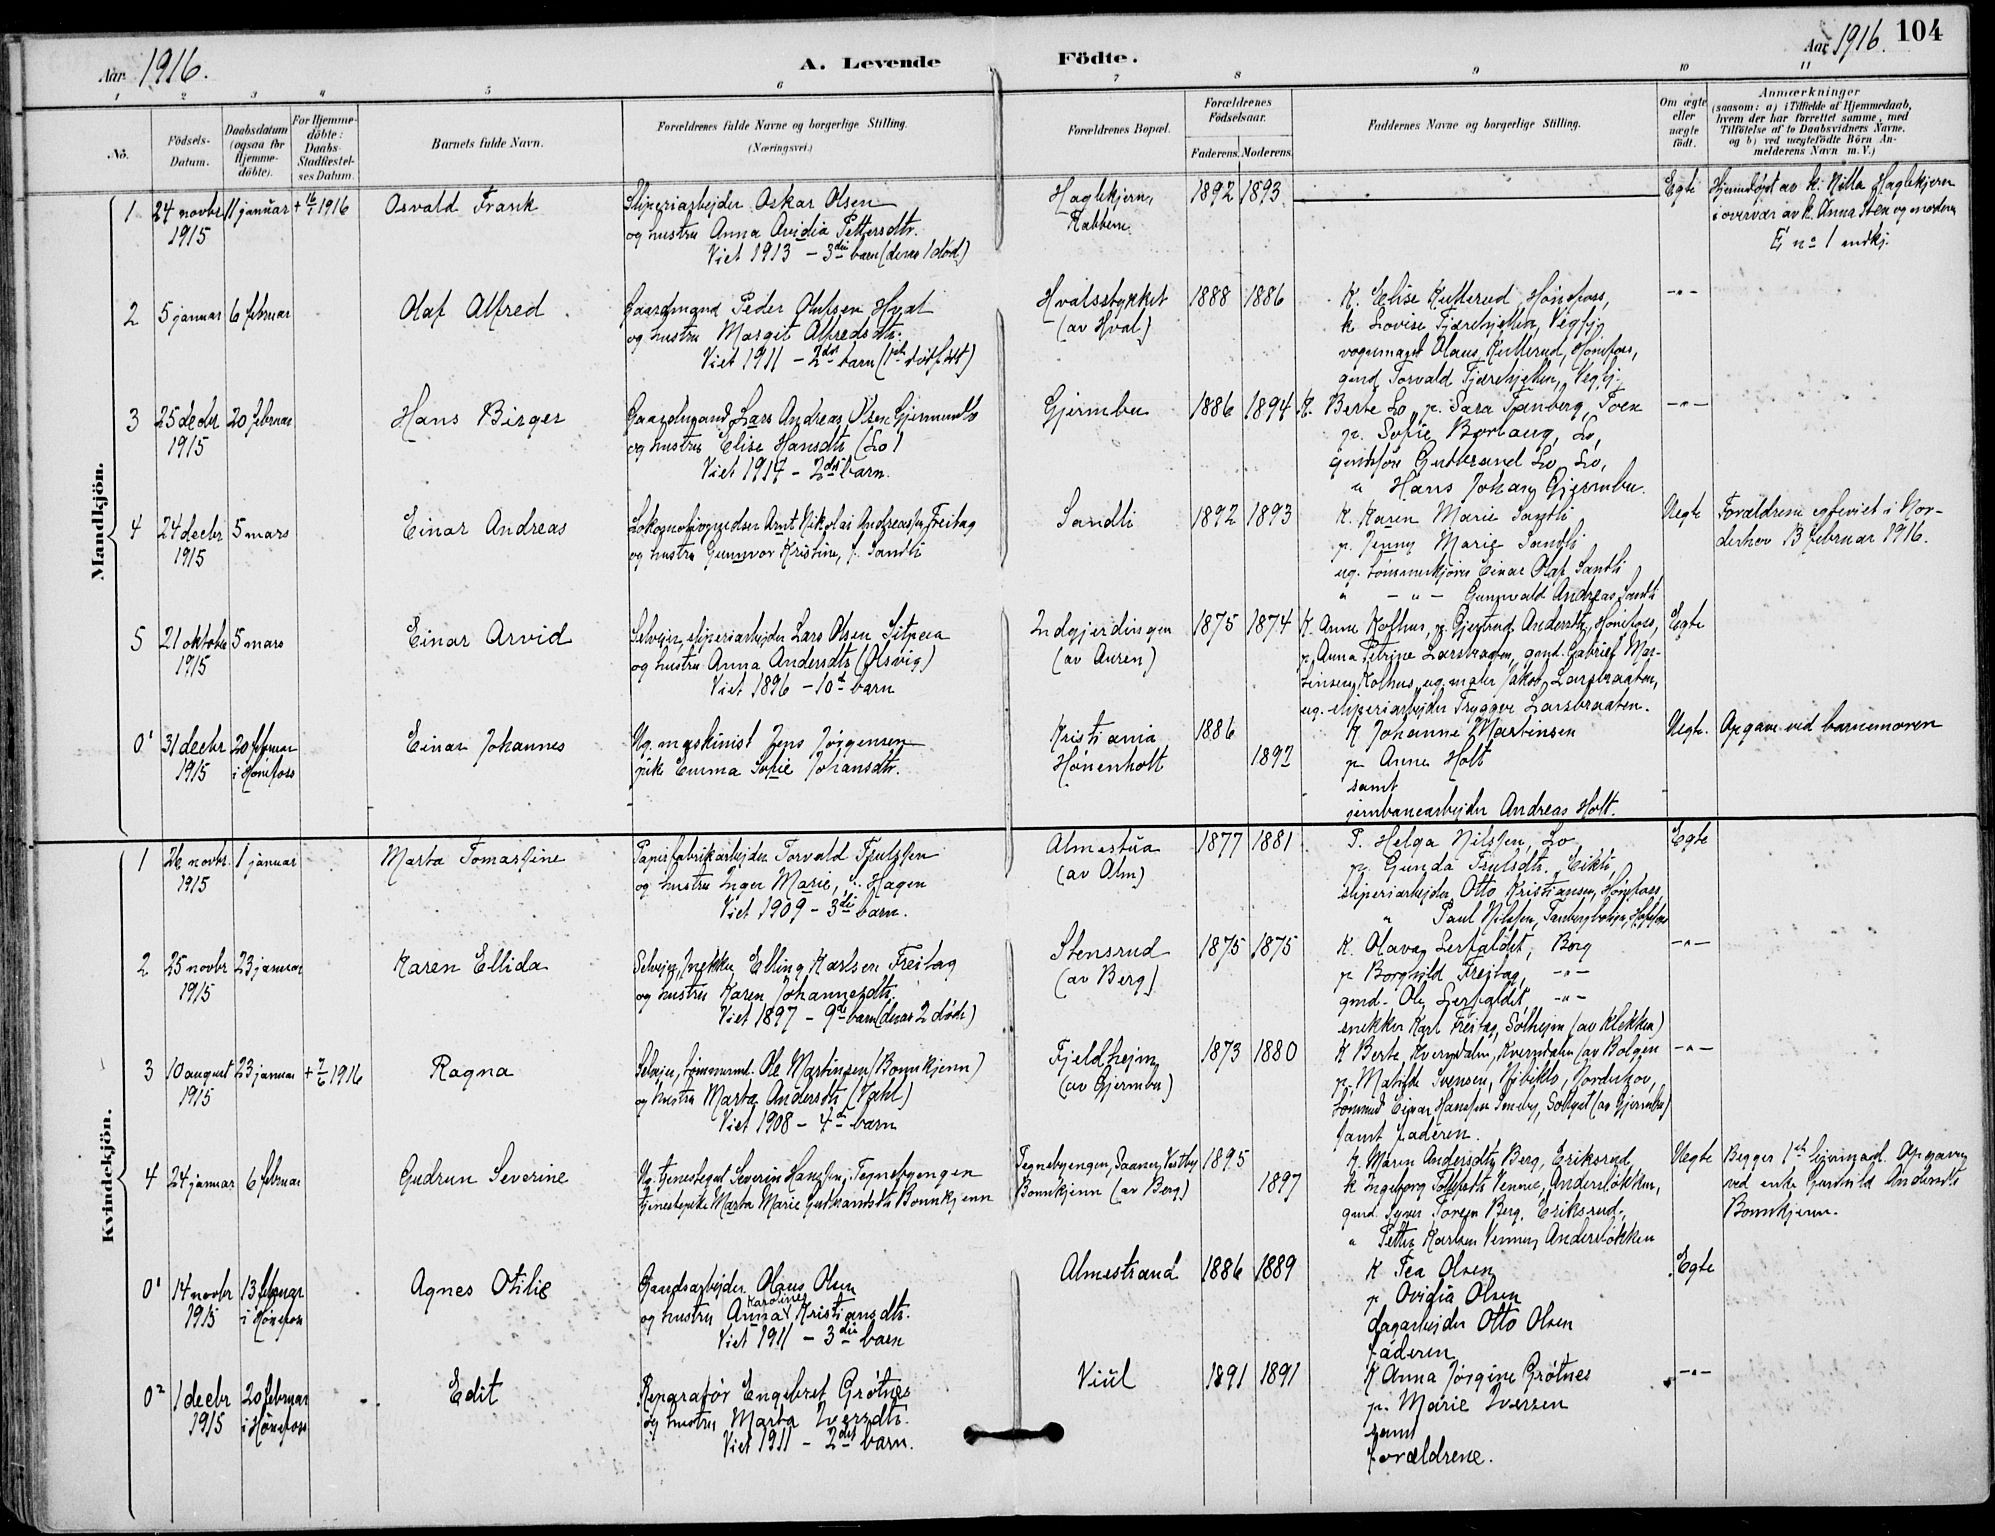 Aar 1916.
A. Levende Födte.
Aar 1916. 104
1 2 3 4 5 6 7 8 9 10 11
No.
Födsels-Datum.
Daabsdatum (ogsaa for Hjemme-döbte).
For Hjemme-döbte: Daabs-Stadfæstel-ses Datum.
Barnets fulde Navn.
Forældrenes fulde Navne og borgerlige Stilling.
(Næringsvei.)
Forældrenes Bopæl.
Forældrenes Födselsaar.
Faderens. Moderens.
Faddernes Navne og borgerlige Stilling.
Om ægte eller uægte födt.
Anmærkninger
(saasom: a) i Tilfælde af Hjemmedaab,
hvem der har forrettet samme, med
Tilföielse af to Daabsvidners Navne.
og b) ved uægtefödte Börn An-
melderens Navn m. V.)
Mandkjön.
1 24 novbr 1915 11 januar + 16/1 1916 Osvald Frank
Sliperiarbejder Oskar Olsen
og hustru Anna Ovidia Pettersdtr.
Viet 1913 – 3die barn (deraf 1 død)
Haglekjern, Rabben.
1892 1893
Egte
Hjemdøpt av k. Nilla Haglekjern
i overvær av k. Anna Steen og moderen
E no 1 mdkj.
2 5 januar 6 februar Olaf Alfred
Gaardmand Peder Olufsen Hval
og hustru Margit Alfredsdtr.
Viet 1911 – 2det barn (1ste dødfødt)
Hvalsstykket
(av Hval)
1888 1886
K. Elise Kullerud, Hønefoss,
k. Lovise Tjærehjellen, Vegsj,
vognmand Olaus Kullerud, Hønefoss,
gmd Torvald Tjærehjellen, Vegsj.
–"–
3 25 decbr 1915 20 februar Hans Birger
Gaardmand Lars Andreas Olsen Gjermundbo
og hustru Elise Hansdtr. (Lo)
Viet 1914 – 2det barn.
Gjermbu
1886 1894
K. Berte Lo, p. Sara Tanberg, Toen
p. Sofie Borlaug, Lo,
gmdsøn Gulbrand Lo, Lo,
" Hans Johan Gjermbu.
–"–
4 24 decbr 1915 5 mars Einar Andreas
Lokomotivpudser Arnt Nikolai Andreassen Freitag
og hustru Gunnvor Kristine, f. Sandli
Sandli
1892 1893
K. Karen Marie Sandli
p. Jenny Marie Sandli
ug. tømmerkjører Einar Olaf Sandli
" – " – Gunnvald Andreas Sandli
Uegte
Forældrene egteviet i Nor-
derhov 13 februar 1916.
5 21 oktober 1915 5 mars Einar Arvid
Selveier, sliperiarbejder Lars Olsen
og hustru Anna Andersdtr (Olsvig)
Viet 1896 – 10de barn
Indgjerdingen
(av Auren)
1875 1874
K. Anne Kolhus, p. Gjertrud Andersdtr, Hønefoss,
p. Anna Petrine Larsbraaten, gmd. Gabriel Mar-
tinsen Kolhus, ug. maler Jakob Larsbraaten,
ug. sliperiarbejder Trygve Larsbraaten.
Egte
0¹ 31 decbr 1915 20 februar i Hønefoss Einar Johannes
Ug. maskinist Jens Jørgensen
pike Emma Sofie Johansdtr.
Kristiania
Hønenholt
1886
1892
K Johanne Martinsen
p Anne Holt
samt
jernbanearbejder Andreas Holt.
Uegte.
Opgave ved barnemoren
Kvindekjön.
1 26 novbr. 1915 1 januar Marta Tomassine
Papirfabrikarbejder Torvald Trulssen
og hustru Inger Marie, f. Hagen
Viet 1909 – 3die barn.
Almestua
(av Alm)
1877 1881
P. Helga Nilssen, Lo
p. Gunda Trulsdtr. Eikli,
sliperiarbejder Otto Kristiansen, Hønefoss,
" Paul Nilssen,
Egte
2 25 novbr 1915 23 januar Karen Ellida
Selveier, snekker Elling Karlsen Freitag
og hustru Karen Johannesdtr.
Viet 1897 – 9de barn (derav 2 døde)
Stensrud
(av Berg)
1875 1875
K. Olava Lerfaldet, Borg
p Borghild Freitag, –"–
gmd. Ole Lerfaldet, –"–
snekker Karl Freitag, Solheim (av Klekken)
–"–
3 10 august 1915 23 januar + 7/6 1916 Ragna
Selveier, tømmermd. Ole Martinsen (Bonnkjenn)
og hustru Marta Andersdtr. (Vahl)
Viet 1908 – 4de barn
Fjeldheim
(av Gjermbu)
1873 1880
K Berte Kverndalen, Kverndalen (av Bolgen
p. Matilde Svensen, Norderhov,
tømmermd Einar Hanssen Smeby, Soltvet (av Gjermbu)
samt faderen.
–"–
4 24 januar 6 februar Gudrun Severine
Ug. tjenestegut Severin Hanssen, Tegnebyengen
tjenestepike Marta Marie Gulbrandsdtr. Bonnkjenn
Tegnebyengen, Saaner, Vestby
Bonnkjenn (av Berg)
1895
1897
K. Maren Andersdtr Berg, Eriksrud,
k Ingeborg Tollefsdtr. Venner, Andersløkken,
gmd. Syver Torgen Berg, Eriksrud,
" Petter Karlsen Venner, Andersløkken
Uegte
Begges 1ste leiermaal. Opgaven
ved enke Gunhild Andersdtr
Bonnkjenn.
0¹ 14 novbr 1915 13 februar i Hønefoss Agnes Otilie
Gaardsarbejder Olaus Olsen
og hustru Anna Karoline Kristiansdtr.
Viet 1911 – 3die barn
Almestrand
1886 1889
K Tea Olsen
p Ovidia Olsen
dagarbejder Otto Olsen
faderen
Egte
0² 1 decbr 1915 20 februar i Hønefoss Edit
Reparatør Engebret Grøtnes
og hustru Marta Iversdtr.
Viet 1911 – 2det barn.
Viul
1891 1891
K Anna Jørgine Grøtnes
p. Marie Iversen
samt
forældrene.
–"–